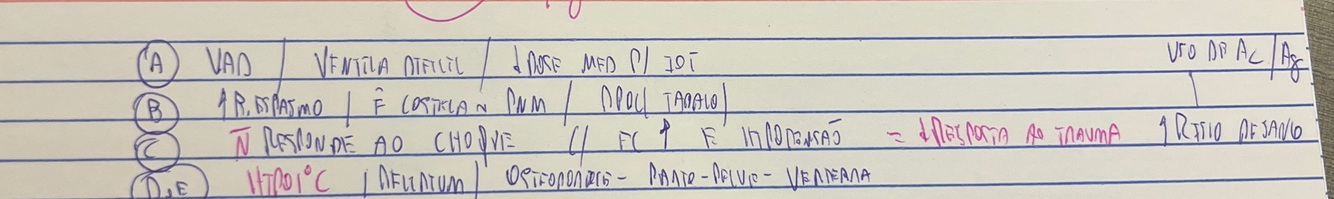 A VAD / VENTILA DIFICIL / ↓ DOSE MED P/ IOT USO DE AC / Ag
B ↑ R. ESPASMO / F COSTELA PNM / DPOC ( TABACO )
C N̄ RESPONDE AO CHOQUE C/ FC ↑ E HIPOTENSÃO = ↓ RESPOSTA AO TRAUMA ↑ RISCO DE SANG
D,E HIPOT°C / DELIRIUM / OSTEOPOROSE - PUNHO - PELVE - VERTEBRA